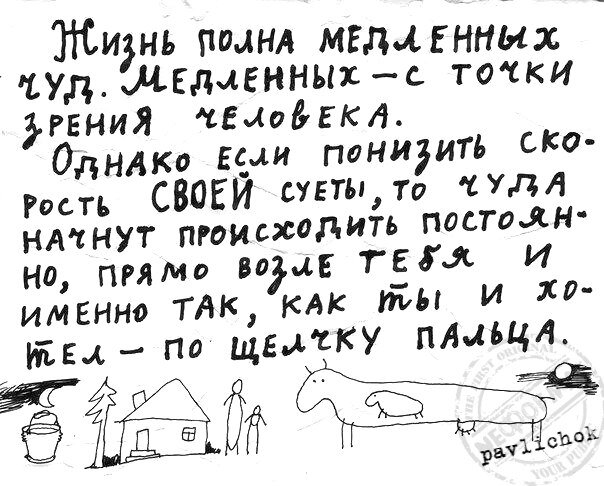 Жизнь полна медленных
чуд. Медленных – с точки
зрения человека.
Однако если понизить ско-
рость СВОЕЙ суеты, то чуда
начнут происходить постоян-
но, прямо возле тебя и
именно так, как ты и хо-
тел – по щелчку пальца.
THE FIRST ORIGINAL
pavlichok
YOUR